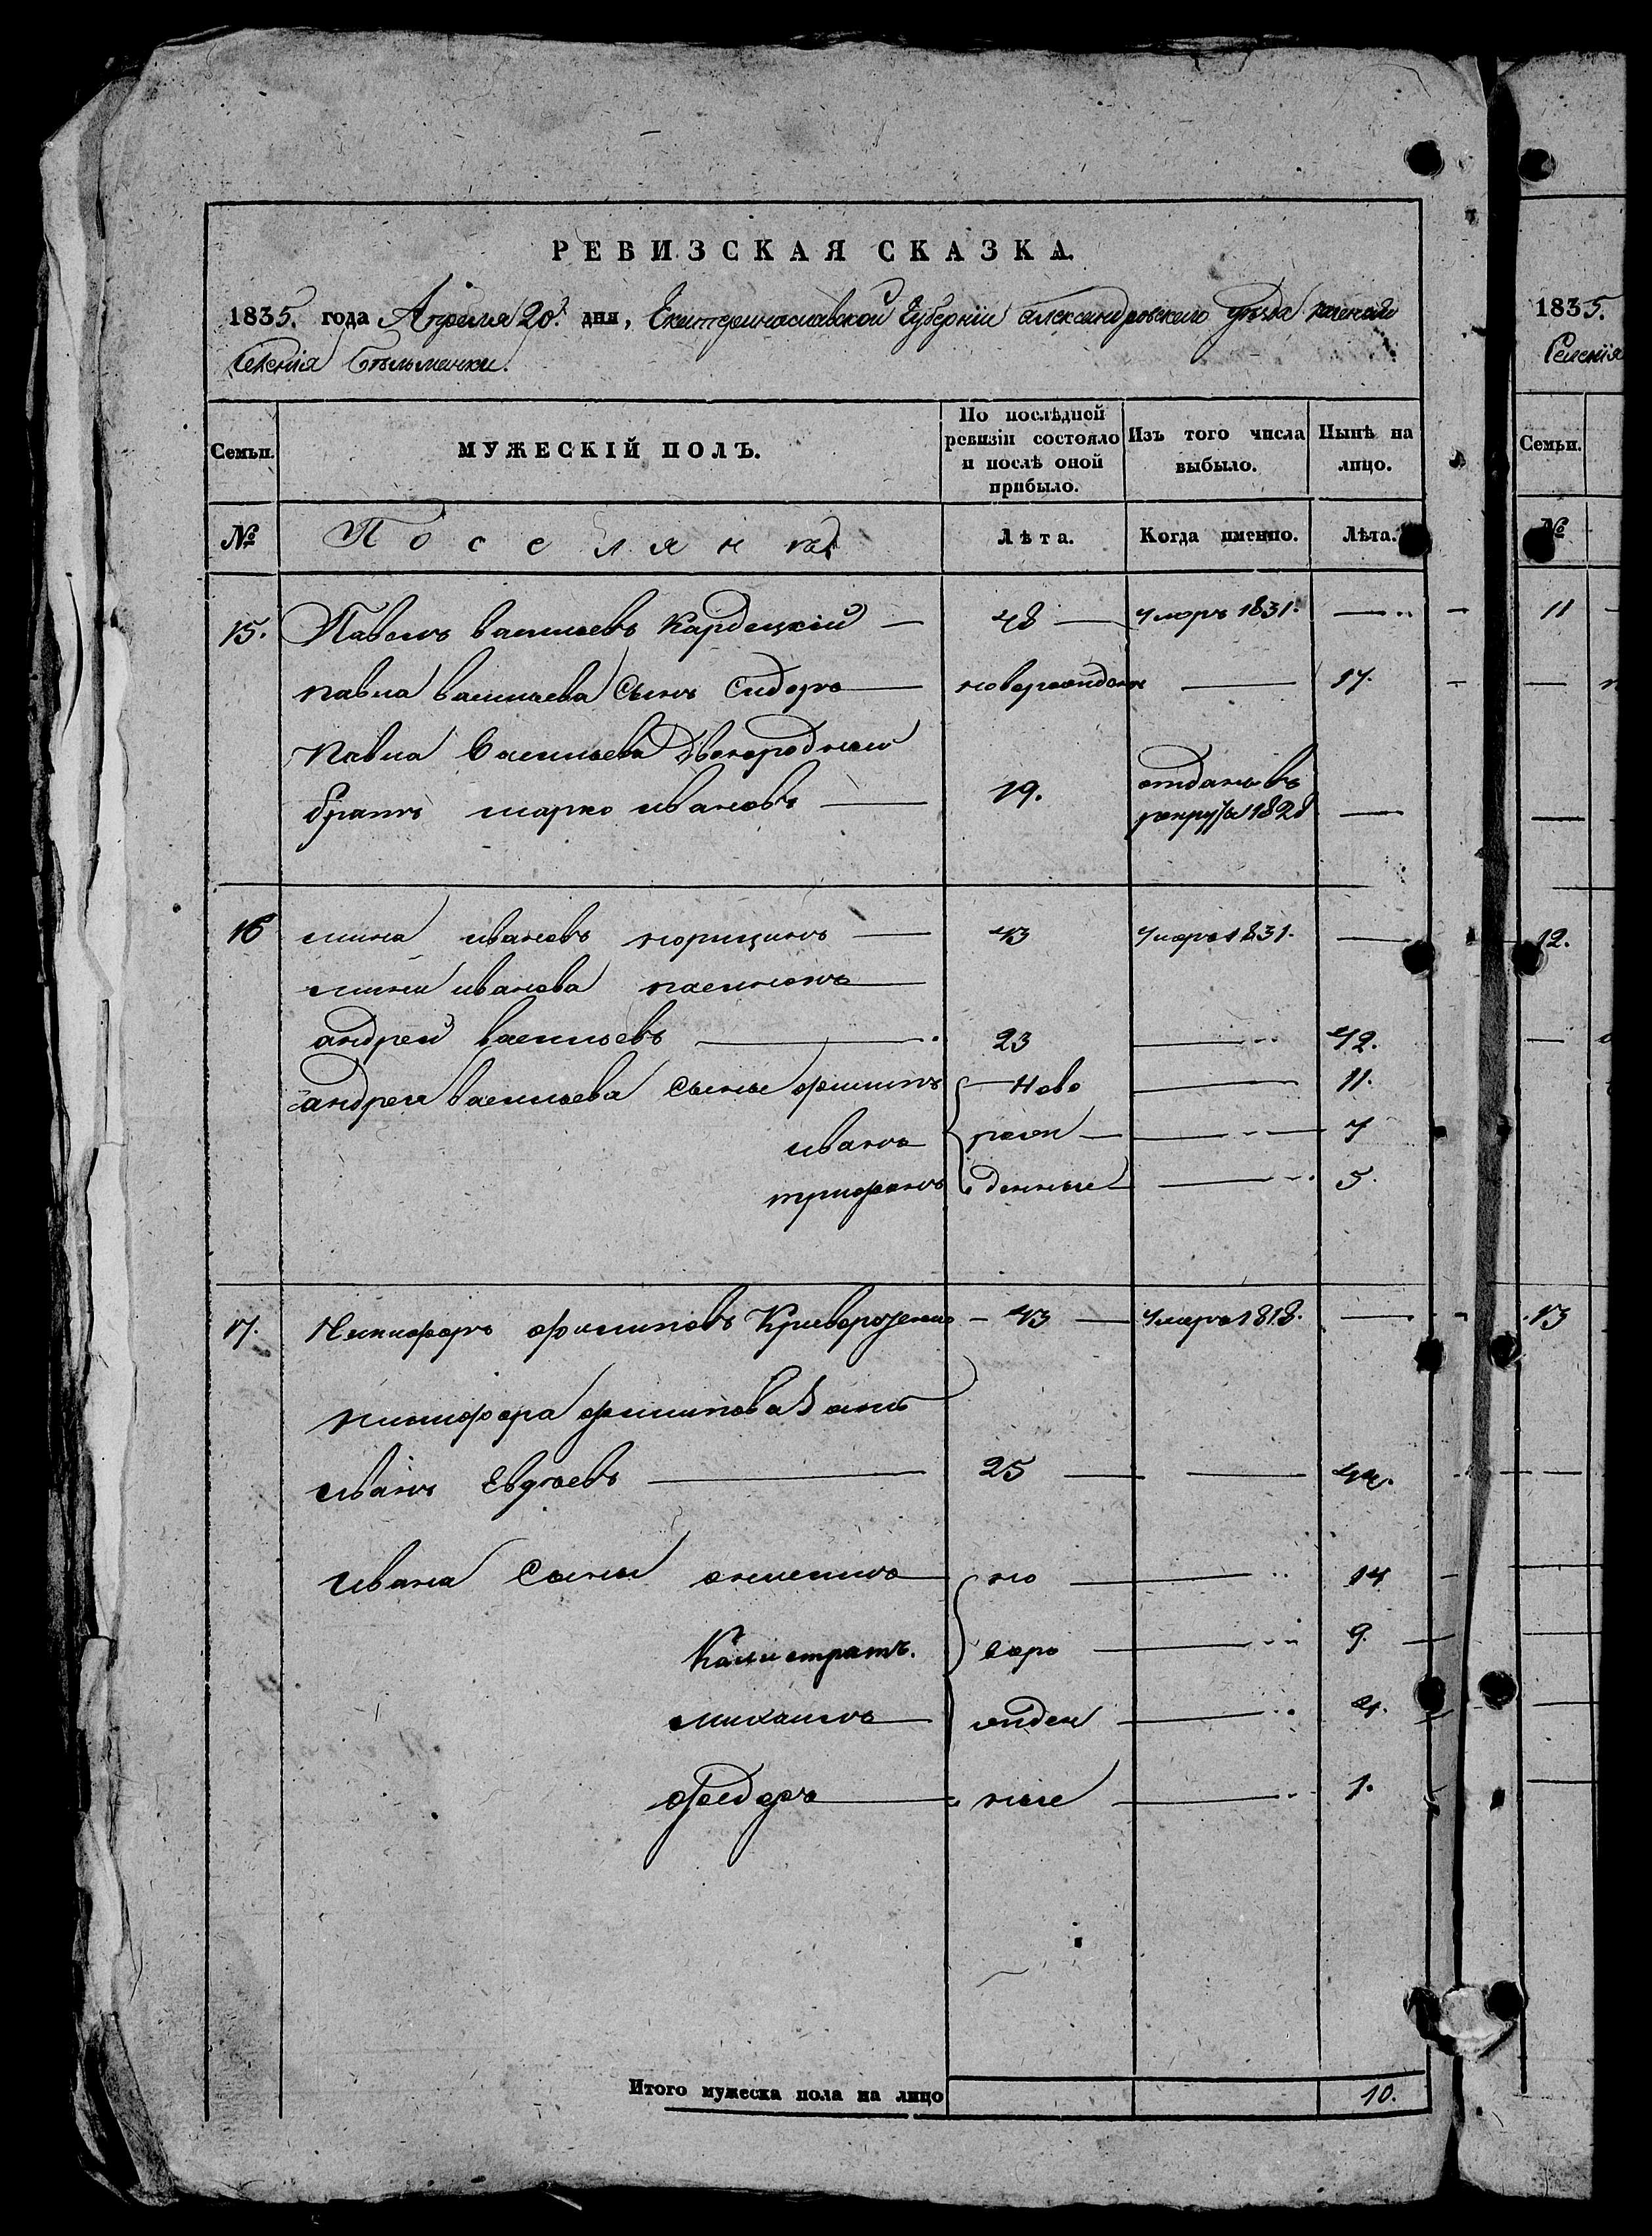 РЕВИЗСКАЯ СКАЗКА.
1835. года Апреля 20. дня, Екатеринославской Губерніи александровского уезда
Селенія
Семьи.
МУЖЕСКІЙ ПОЛЪ.
По послѣдней ревизіи состояло и послѣ оной прибыло.
Изъ того числа выбыло.
Нынѣ на лицо.
№
Поселянъ
Лѣта.
Когда именно.
Лѣта.
15. Павелъ васильевъ Кардецкій — 48 — умеръ 1831. —
павла васильева Сынъ Сидоръ — новорожденъ — 17.
Павла Васильева Двоюродный
братъ марко ивановъ — 19. отданъ въ рекруты 1828 —
16 мина ивановъ — 43 умеръ 1831. —
мины иванова пасынокъ
андрей васильевъ — 23 — 42.
андрея васильева Сыны филипъ — Ново — 11.
иванъ рожъ — — 7
трифонъ денные — 5.
17. Никифоръ филиповъ — 43 — умеръ 1818. —
никифора филипова Зять
иванъ — 25 — — 44.
ивана Сыны но — 14
Калистратъ. воро — 9.
михаилъ — жден — 4.
федоръ — ные — 1.
Итого мужеска пола на лицо 10.
1835.
Селенія
Семьи.
№
11
12.
13